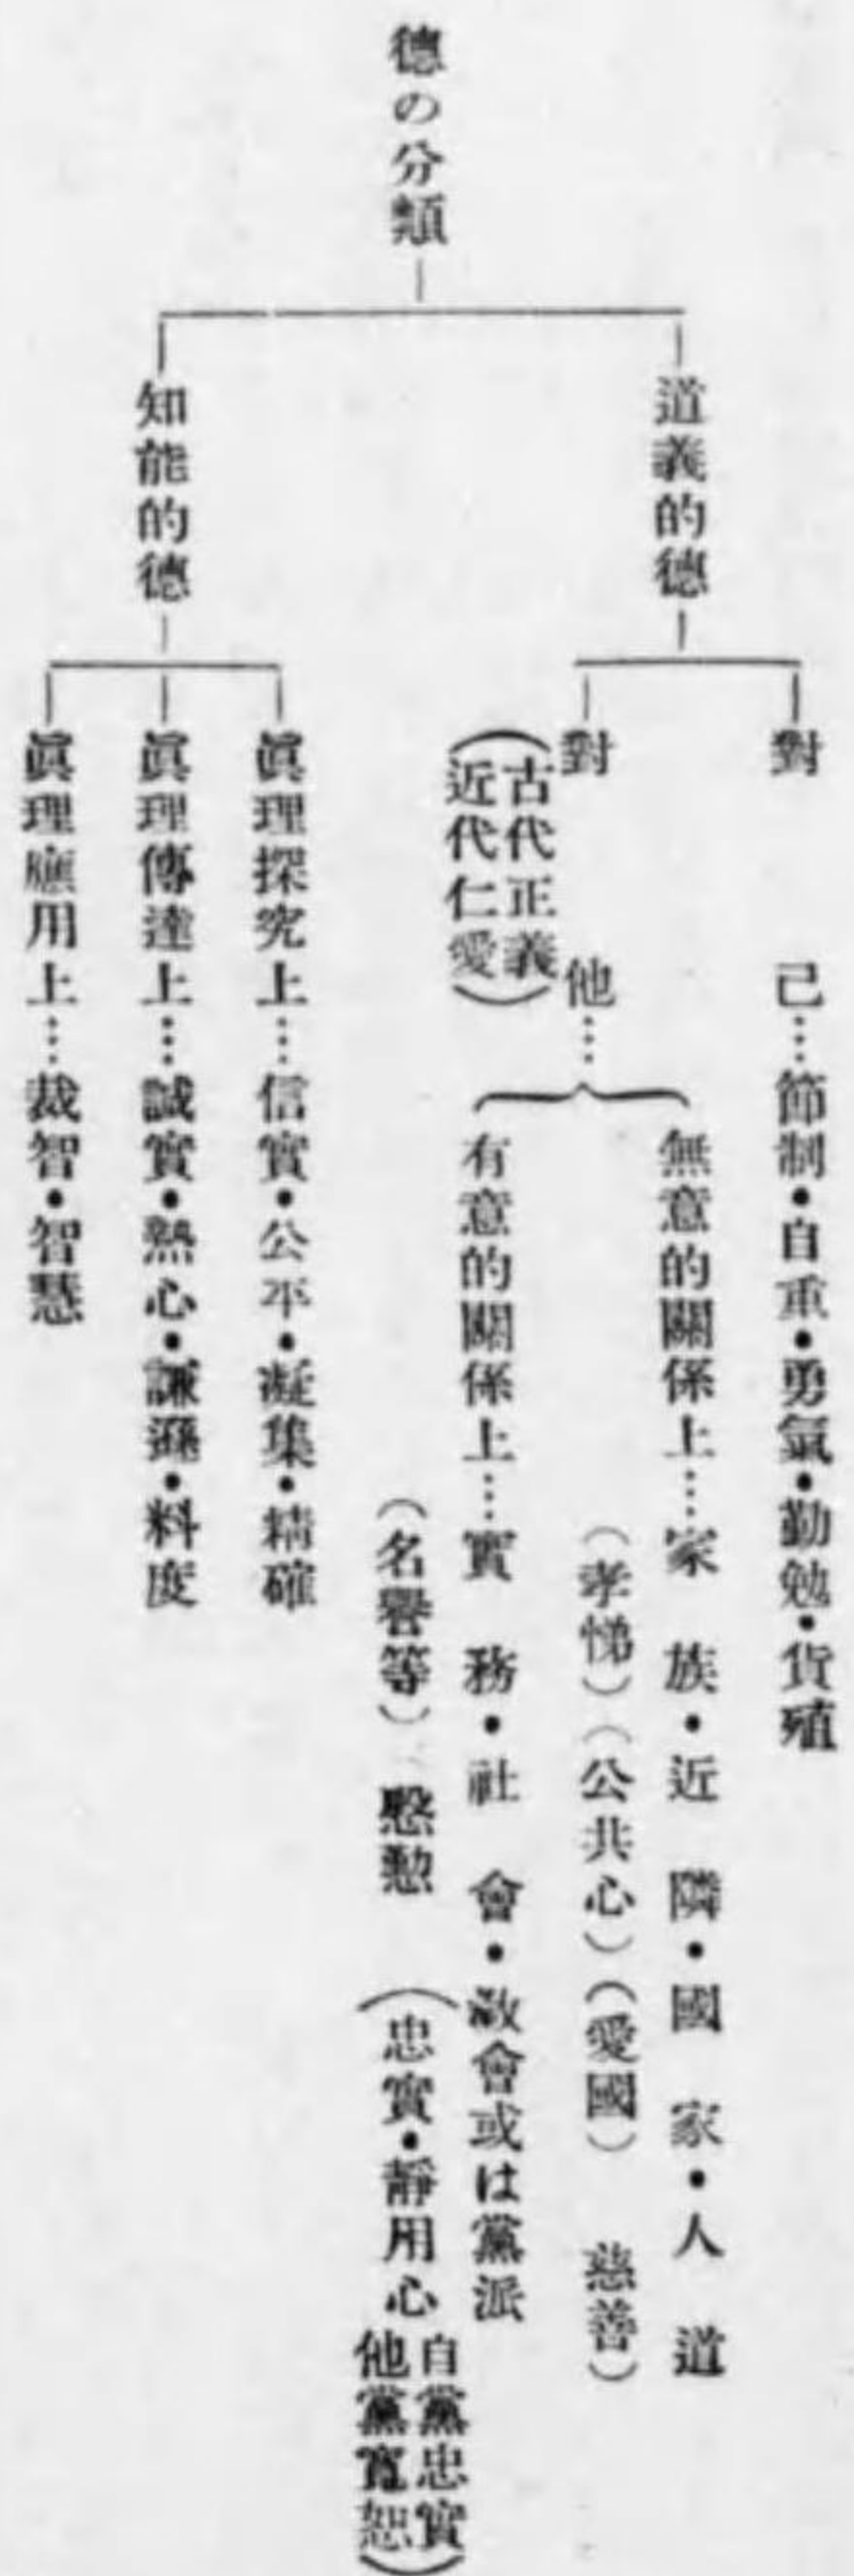 德の分類
道義的德
對己…節制・自重・勇氣・勤勉・貨殖
對他…
(古代正義
近代仁愛)
無意的關係上…家族・近隣・國家・人道
(孝悌)(公共心)(愛國) 慈善)
有意的關係上…實務・社會・敎會或は黨派
(名譽等) 慇懃 (忠實・靜用心
自黨忠實
他黨寬恕)
知能的德
眞理探究上…信實・公平・凝集・精確
眞理傳達上…誠實・熱心・謙遜・料度
眞理應用上…裁智・智慧